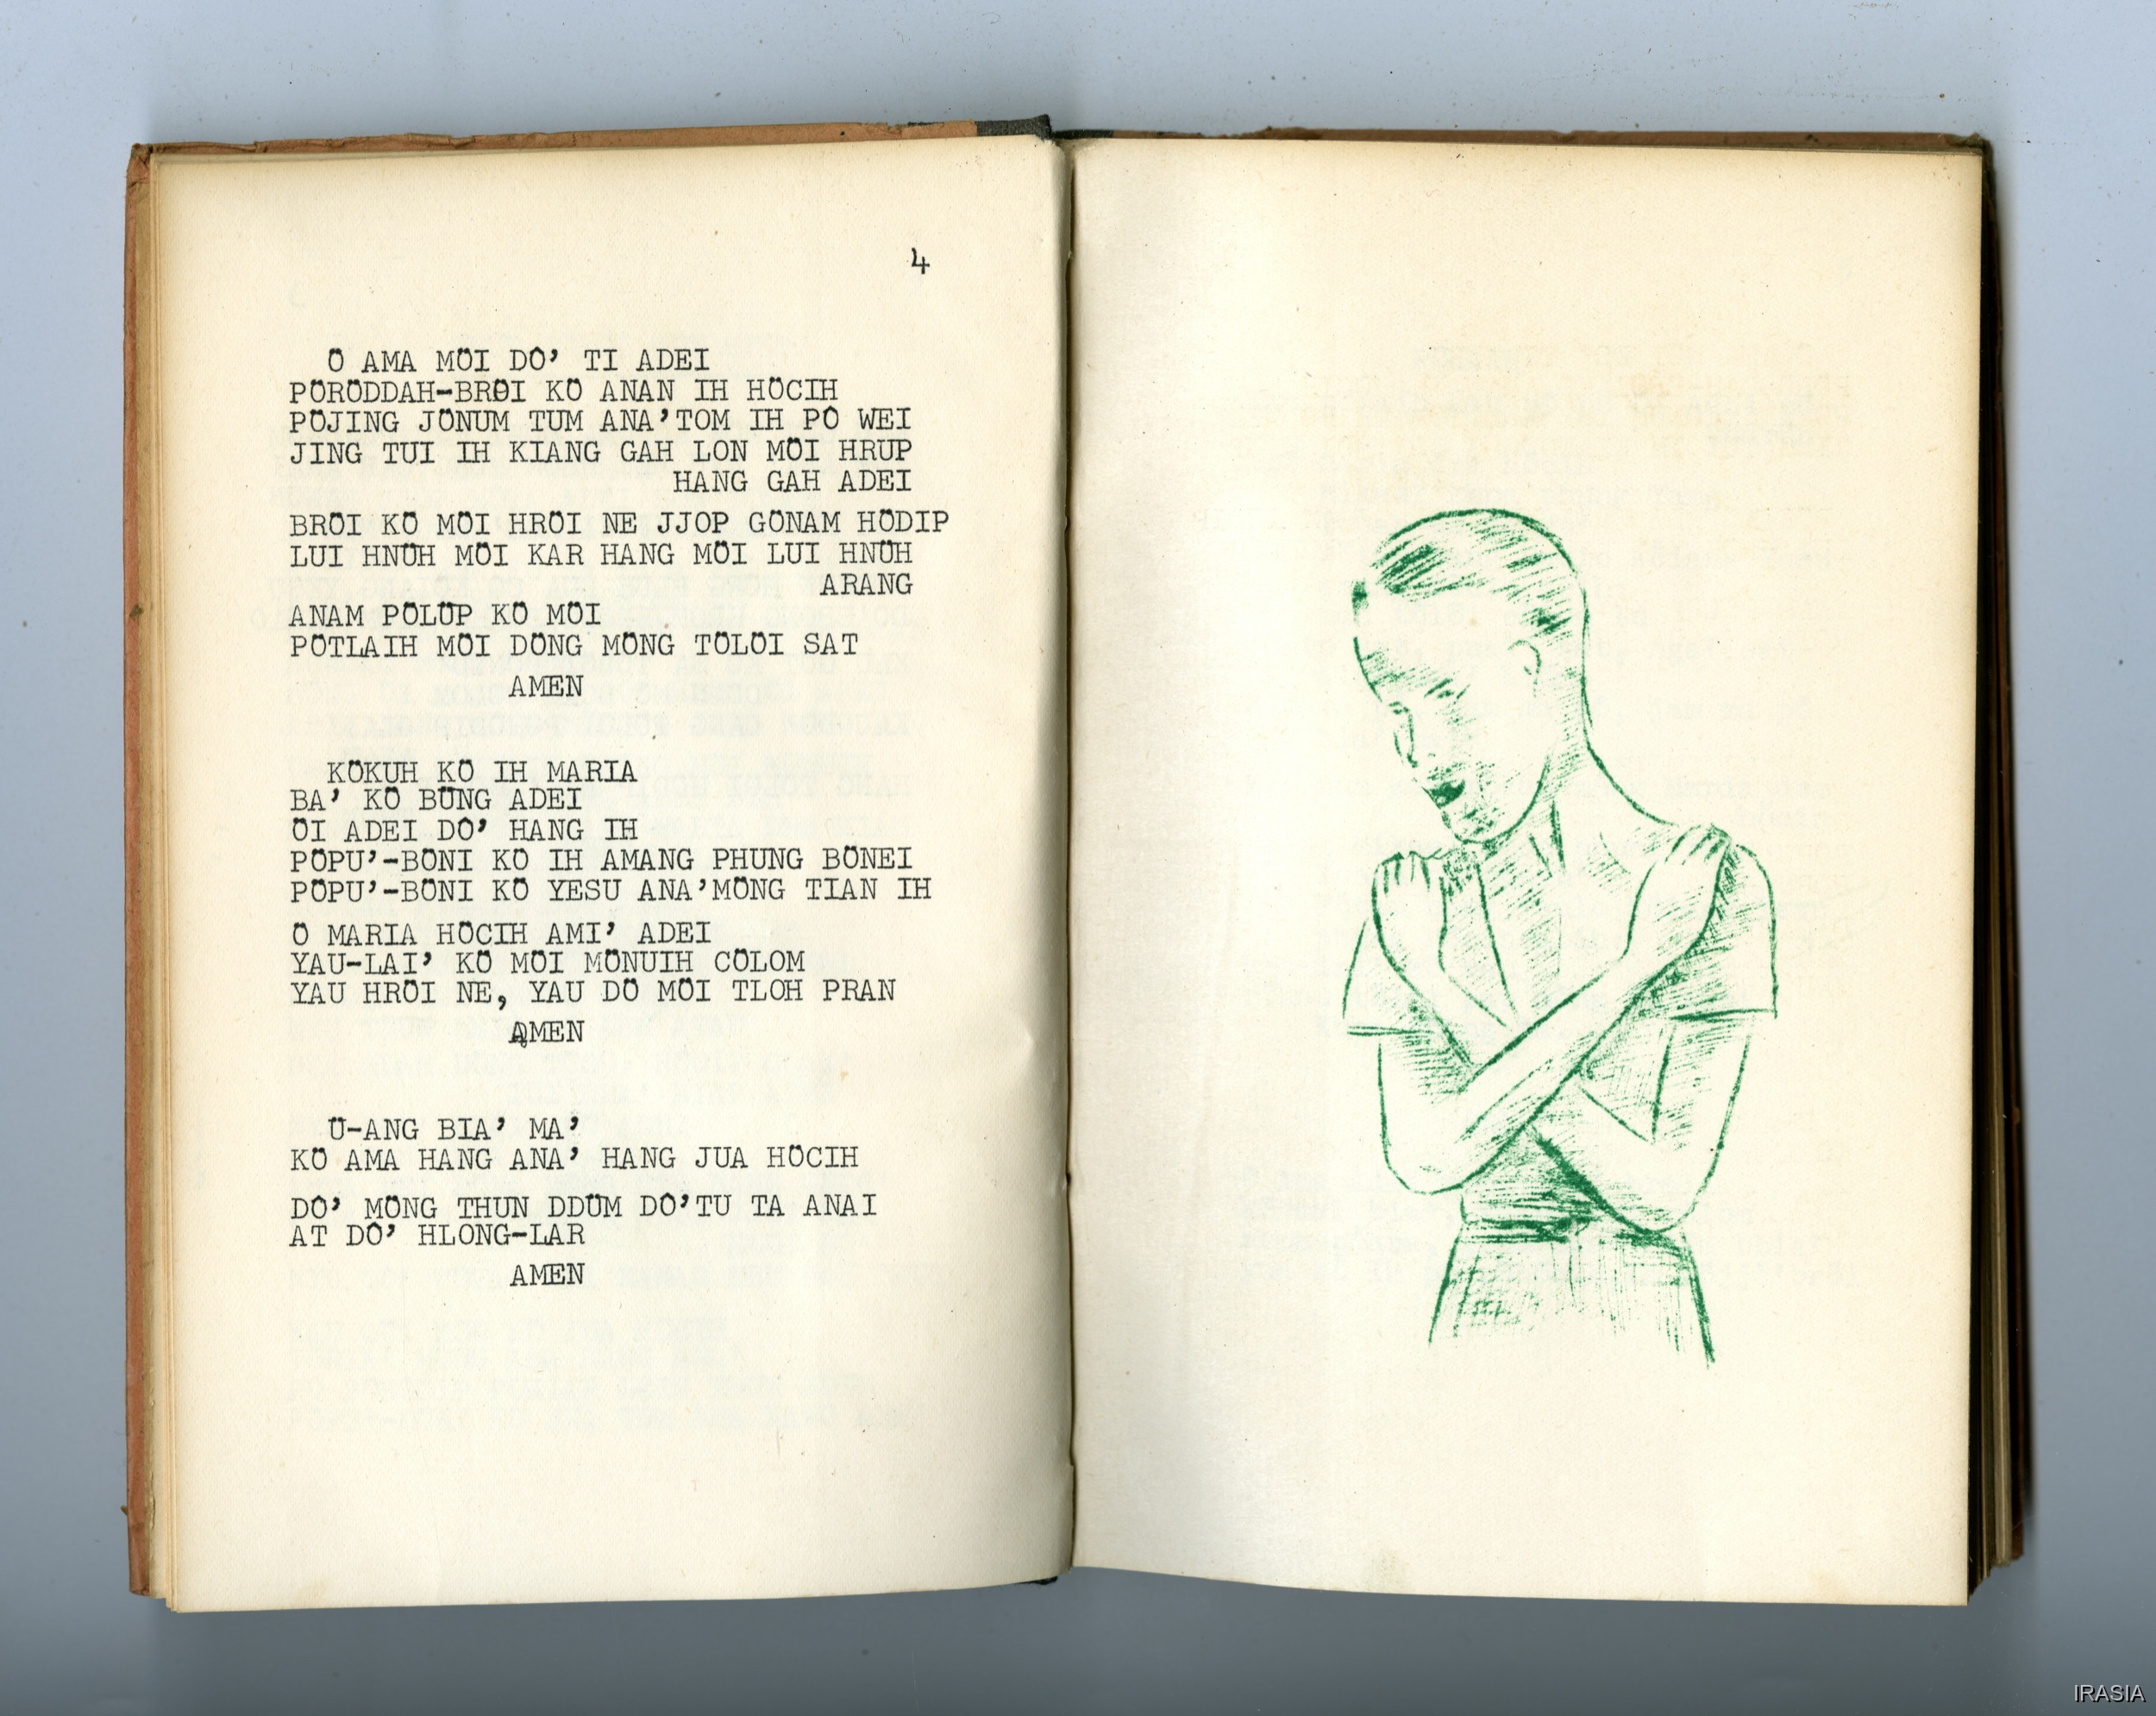 4
Ö AMA MÖI DÔ' TI ADEI
PÖRÖDDAH-BRÖI KÖ ANAN IH HÖCIH
PÖJING JÖNUM TUM ANA'TOM IH PÔ WEI
JING TUI IH KIANG GAH LON MÖI HRUP
HANG GAH ADEI
BRÖI KÖ MÖI HRÖI NE JJOP GÖNAM HÖDIP
LUI HNÜH MÖI KAR HANG MÖI LUI HNÜH
ARANG
ANAM PÖLÜP KÖ MÖI
PÖTLAIH MÖI DÖNG MÖNG TÖLÖI SAT
AMEN
KÖKUH KÖ IH MARIA
BA' KÖ BÜNG ADEI
ÖI ADEI DÔ' HANG IH
PÖPU'-BÖNI KÖ IH AMANG PHUNG BÖNEI
PÖPU'-BÖNI KÖ YESU ANA'MÖNG TIAN IH
Ö MARIA HÖCIH AMI' ADEI
YAU-LAI' KÖ MÖI MÖNUIH CÖLOM
YAU HRÖI NE, YAU DÖ MÖI TLOH PRAN
AMEN
Ü-ANG BIA' MA'
KÖ AMA HANG ANA' HANG JUA HÖCIH
DÔ' MÖNG THUN DDÜM DÔ'TU TA ANAI
AT DÔ' HLONG-LAR
AMEN
IRASIA